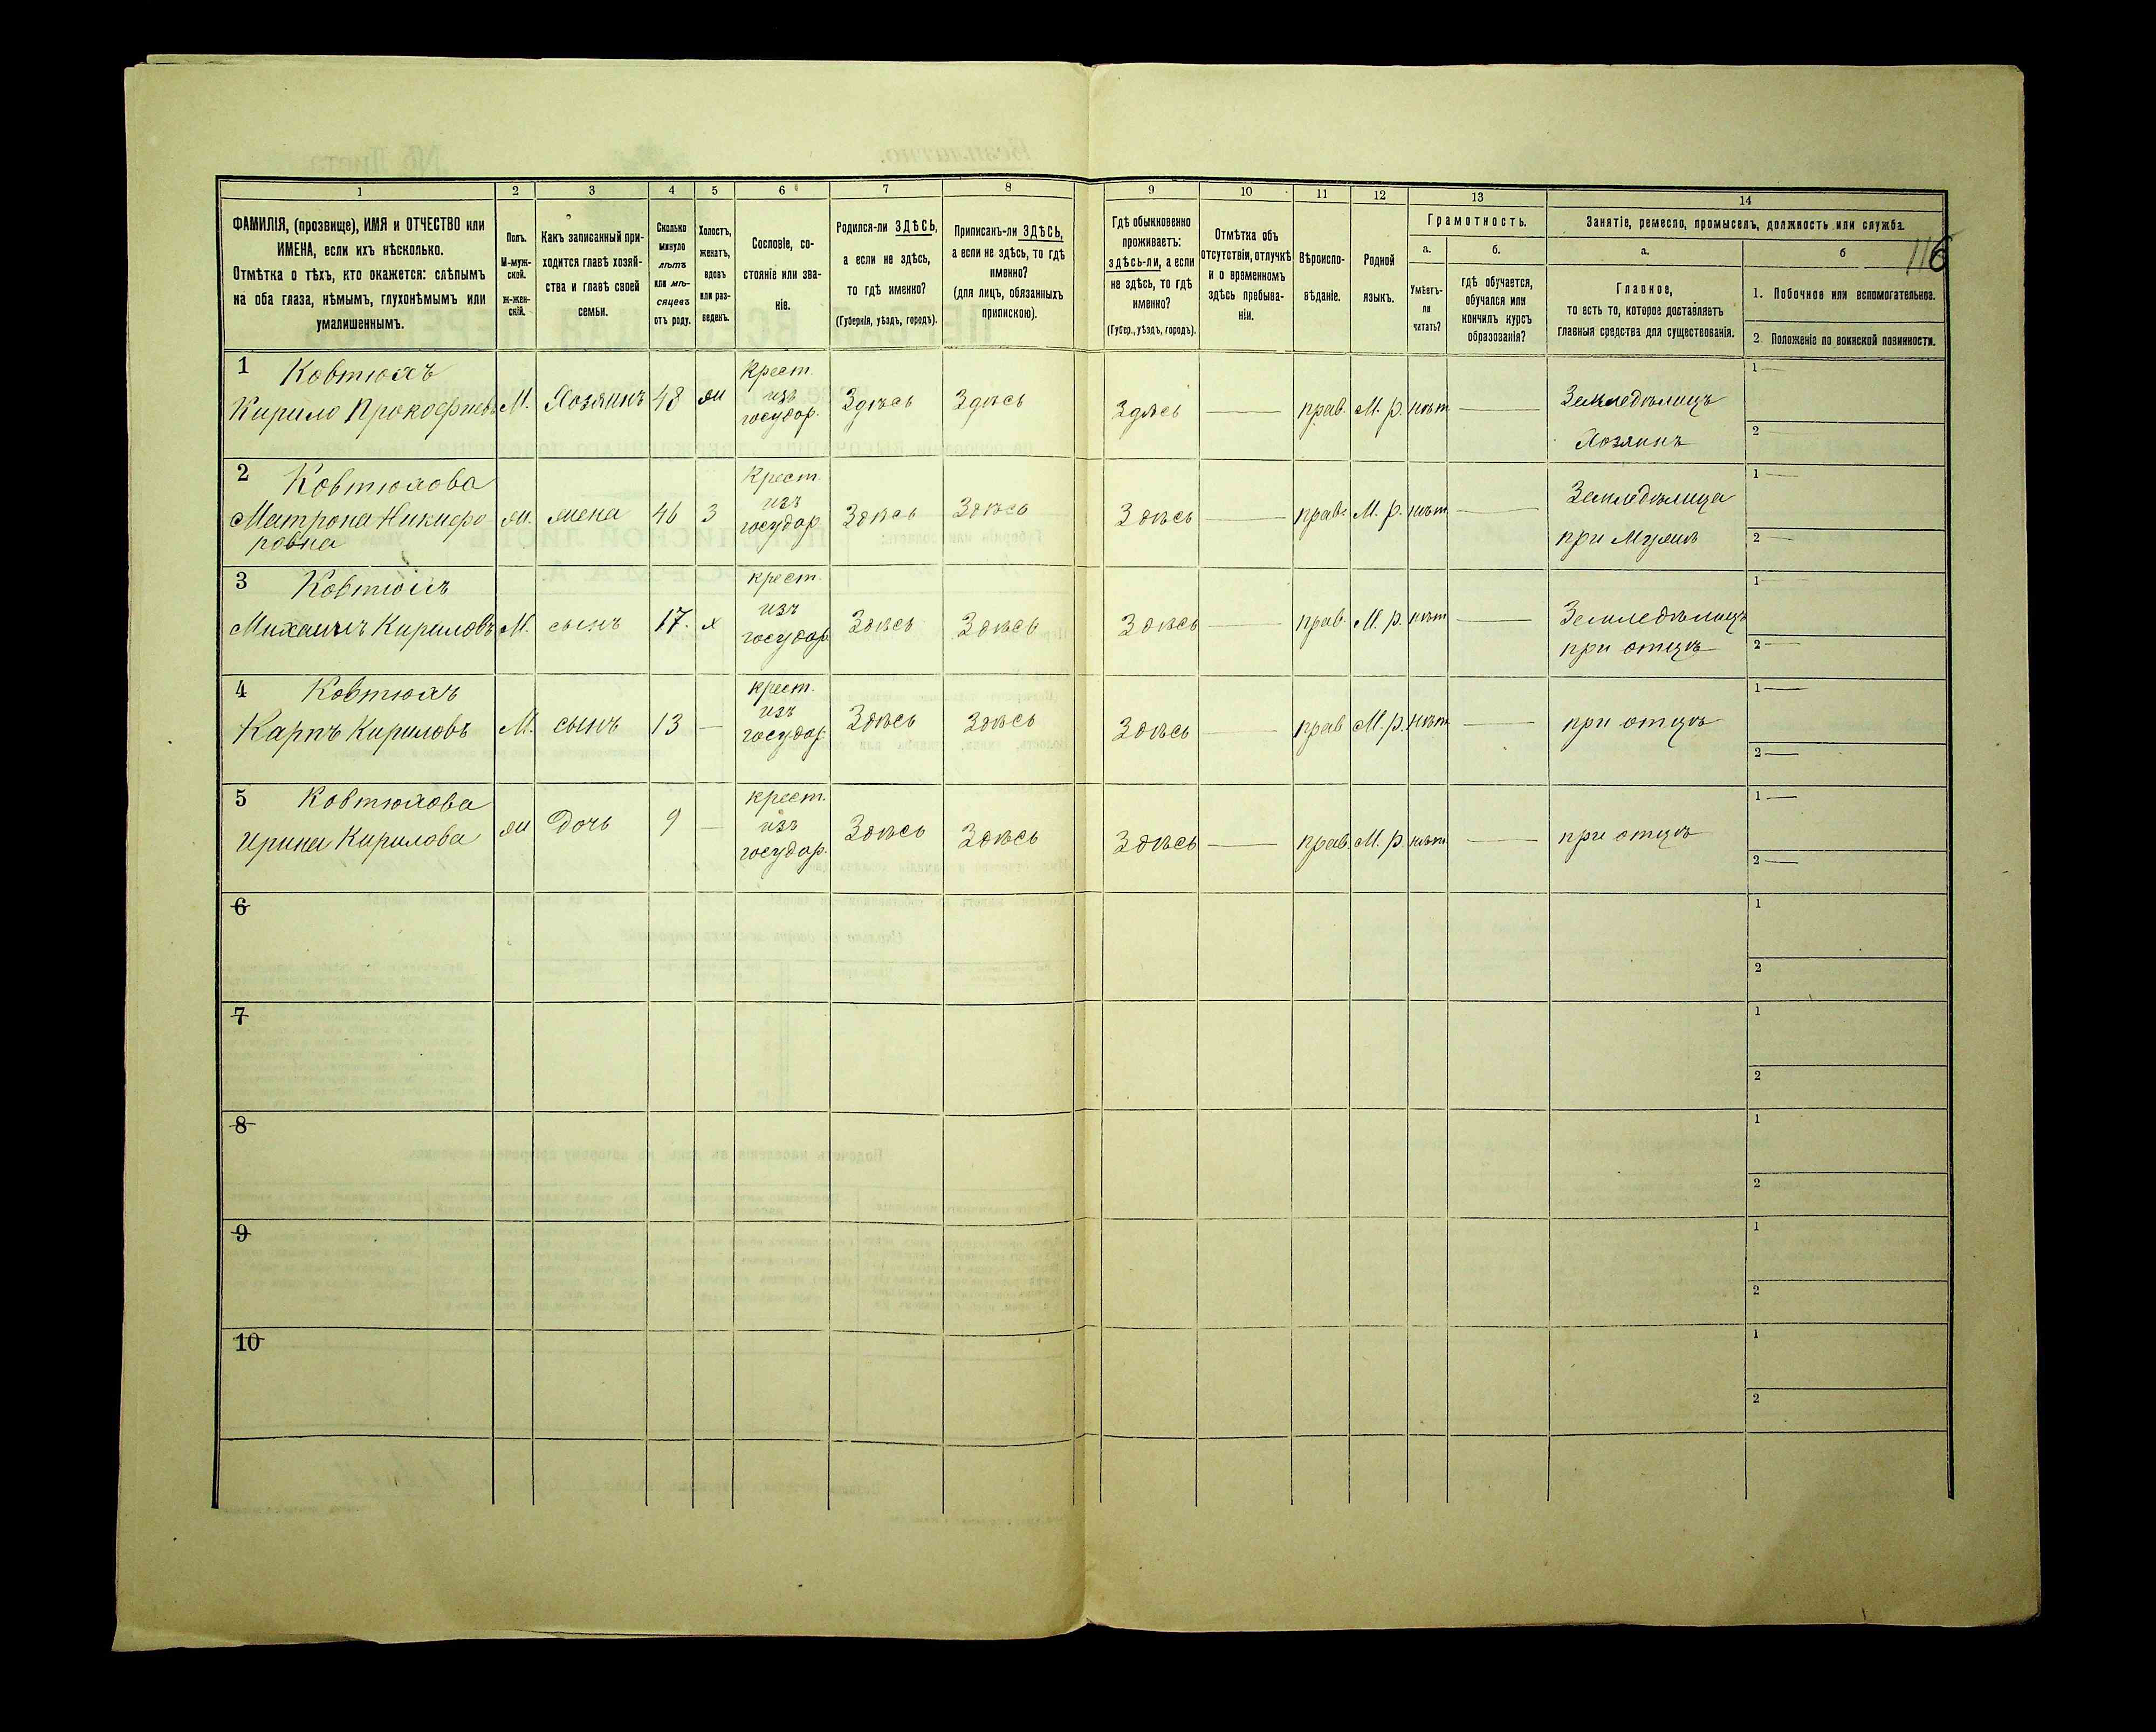 1 2 3 4 5 6 7 8 9 10 11 12 13 14
ФАМИЛІЯ, (прозвище), ИМЯ и ОТЧЕСТВО или
ИМЕНА, если ихъ нѣсколько.
Отмѣтка о тѣхъ, кто окажется: слѣпымъ
на оба глаза, нѣмымъ, глухонѣмымъ или
умалишеннымъ.
Полъ.
М-муж-
ской.
ж-жен-
скій.
Какъ записанный при-
ходится главѣ хозяй-
ства и главѣ своей
семьи.
Сколько
минуло
лѣтъ
или мѣ-
сяцевъ
отъ роду.
Холостъ,
женатъ,
вдовъ
или раз-
веденъ.
Сословіе, со-
стояніе или зва-
ніе.
Родился-ли ЗДѢСЬ,
а если не здѣсь,
то гдѣ именно?
(Губернія, уѣздъ, городъ).
Приписанъ-ли ЗДѢСЬ,
а если не здѣсь, то гдѣ
именно?
(для лицъ, обязанныхъ
припискою).
Гдѣ обыкновенно
проживаетъ:
здѣсь-ли, а если
не здѣсь, то гдѣ
именно?
(Губер., уѣздъ, городъ).
Отмѣтка объ
отсутствіи, отлучкѣ
и о временномъ
здѣсь пребыва-
ніи.
Вѣроиспо-
вѣданіе.
Родной
языкъ.
Грамотность.
а.
Умѣетъ-
ли
читать?
б.
гдѣ обучается,
обучался или
кончилъ курсъ
образованія?
Занятіе, ремесло, промыселъ, должность или служба.
а.
Главное,
то есть то, которое доставляетъ
главныя средства для существованія.
б
116
1. Побочное или вспомогательное.
2. Положеніе по воинской повинности.
1 Ковтюхъ
Кирило Прокофиевъ
М. Хозяинъ 48 ж
Крест.
изъ
государ.
Здѣсь Здѣсь Здѣсь — прав. М. р. нѣт —
Земледѣлицъ
Хозяинъ
1 —
2 —
2 Ковтюхова
Матрона Никифо
ровна
ж. жена 46 З
Крест.
изъ
государ.
Здѣсь Здѣсь Здѣсь — прав. М. р. нѣт —
Земледѣлица
при Мужѣ
1 —
2 —
3 Ковтюхъ
Михаилъ Кириловъ
М. сынъ 17. х
крест.
изъ
государ.
Здѣсь Здѣсь Здѣсь — прав. М. р. нѣт —
Земледѣлицъ
при отцѣ
1 —
2 —
4 Ковтюхъ
Карпъ Кириловъ
М. сынъ 13 —
крест.
изъ
государ.
Здѣсь Здѣсь Здѣсь — прав М. р. нѣт —
при отцѣ
1 —
2 —
5 Ковтюхова
Ирина Кирилова
ж Дочь 9 —
крест.
изъ
государ.
Здѣсь Здѣсь Здѣсь — прав. М. р. нѣт —
при отцѣ
1 —
2 —
6
1
2
7
1
2
8
1
2
9
1
2
10
1
2